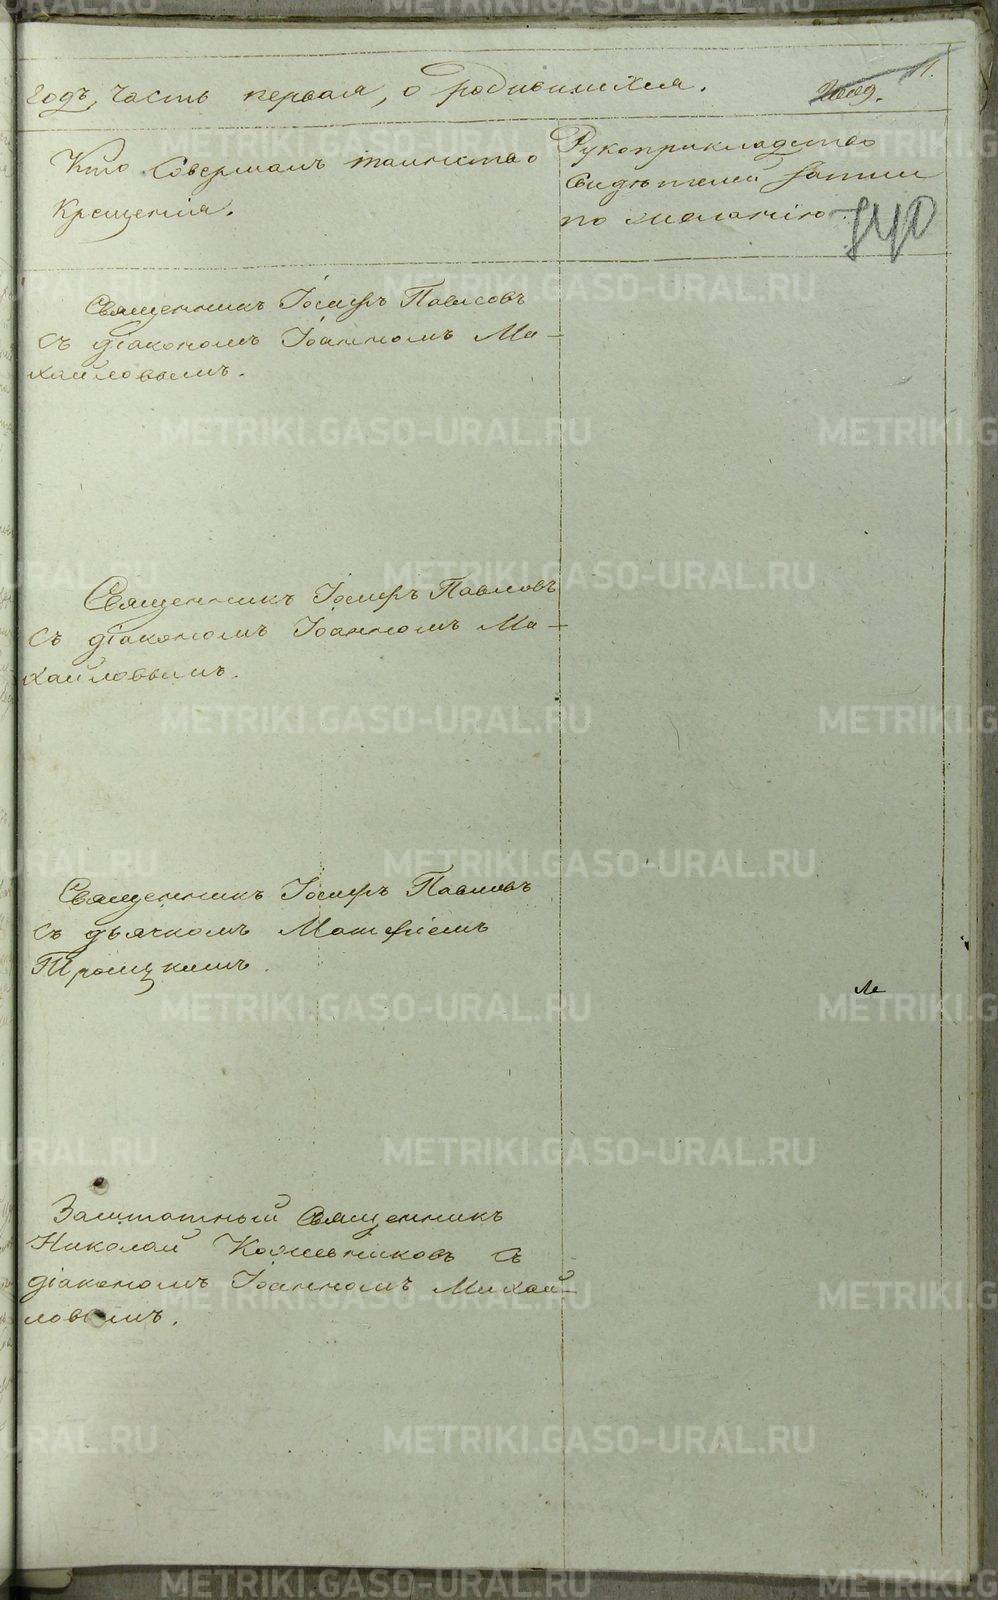 11.
годъ, часть первая, о родившихся.
Кто совершалъ таинство
крещенія.
Рукоприкладство
свидѣтелей записи
по желанію.
740
Священникъ Іосифъ Павловъ
съ діакономъ Іоанномъ Ми-
хайловымъ.
Священникъ Іосифъ Павловъ
съ діакономъ Іоанномъ Ми-
хайловымъ.
Священникъ Іосифъ Павловъ
съ дьячкомъ Матфіемъ
Троицкимъ.
Заштатный Священникъ
Николай Кожевниковъ съ
діакономъ Іоанномъ Михай-
ловымъ.
METRIKI.GASO-URAL.RU